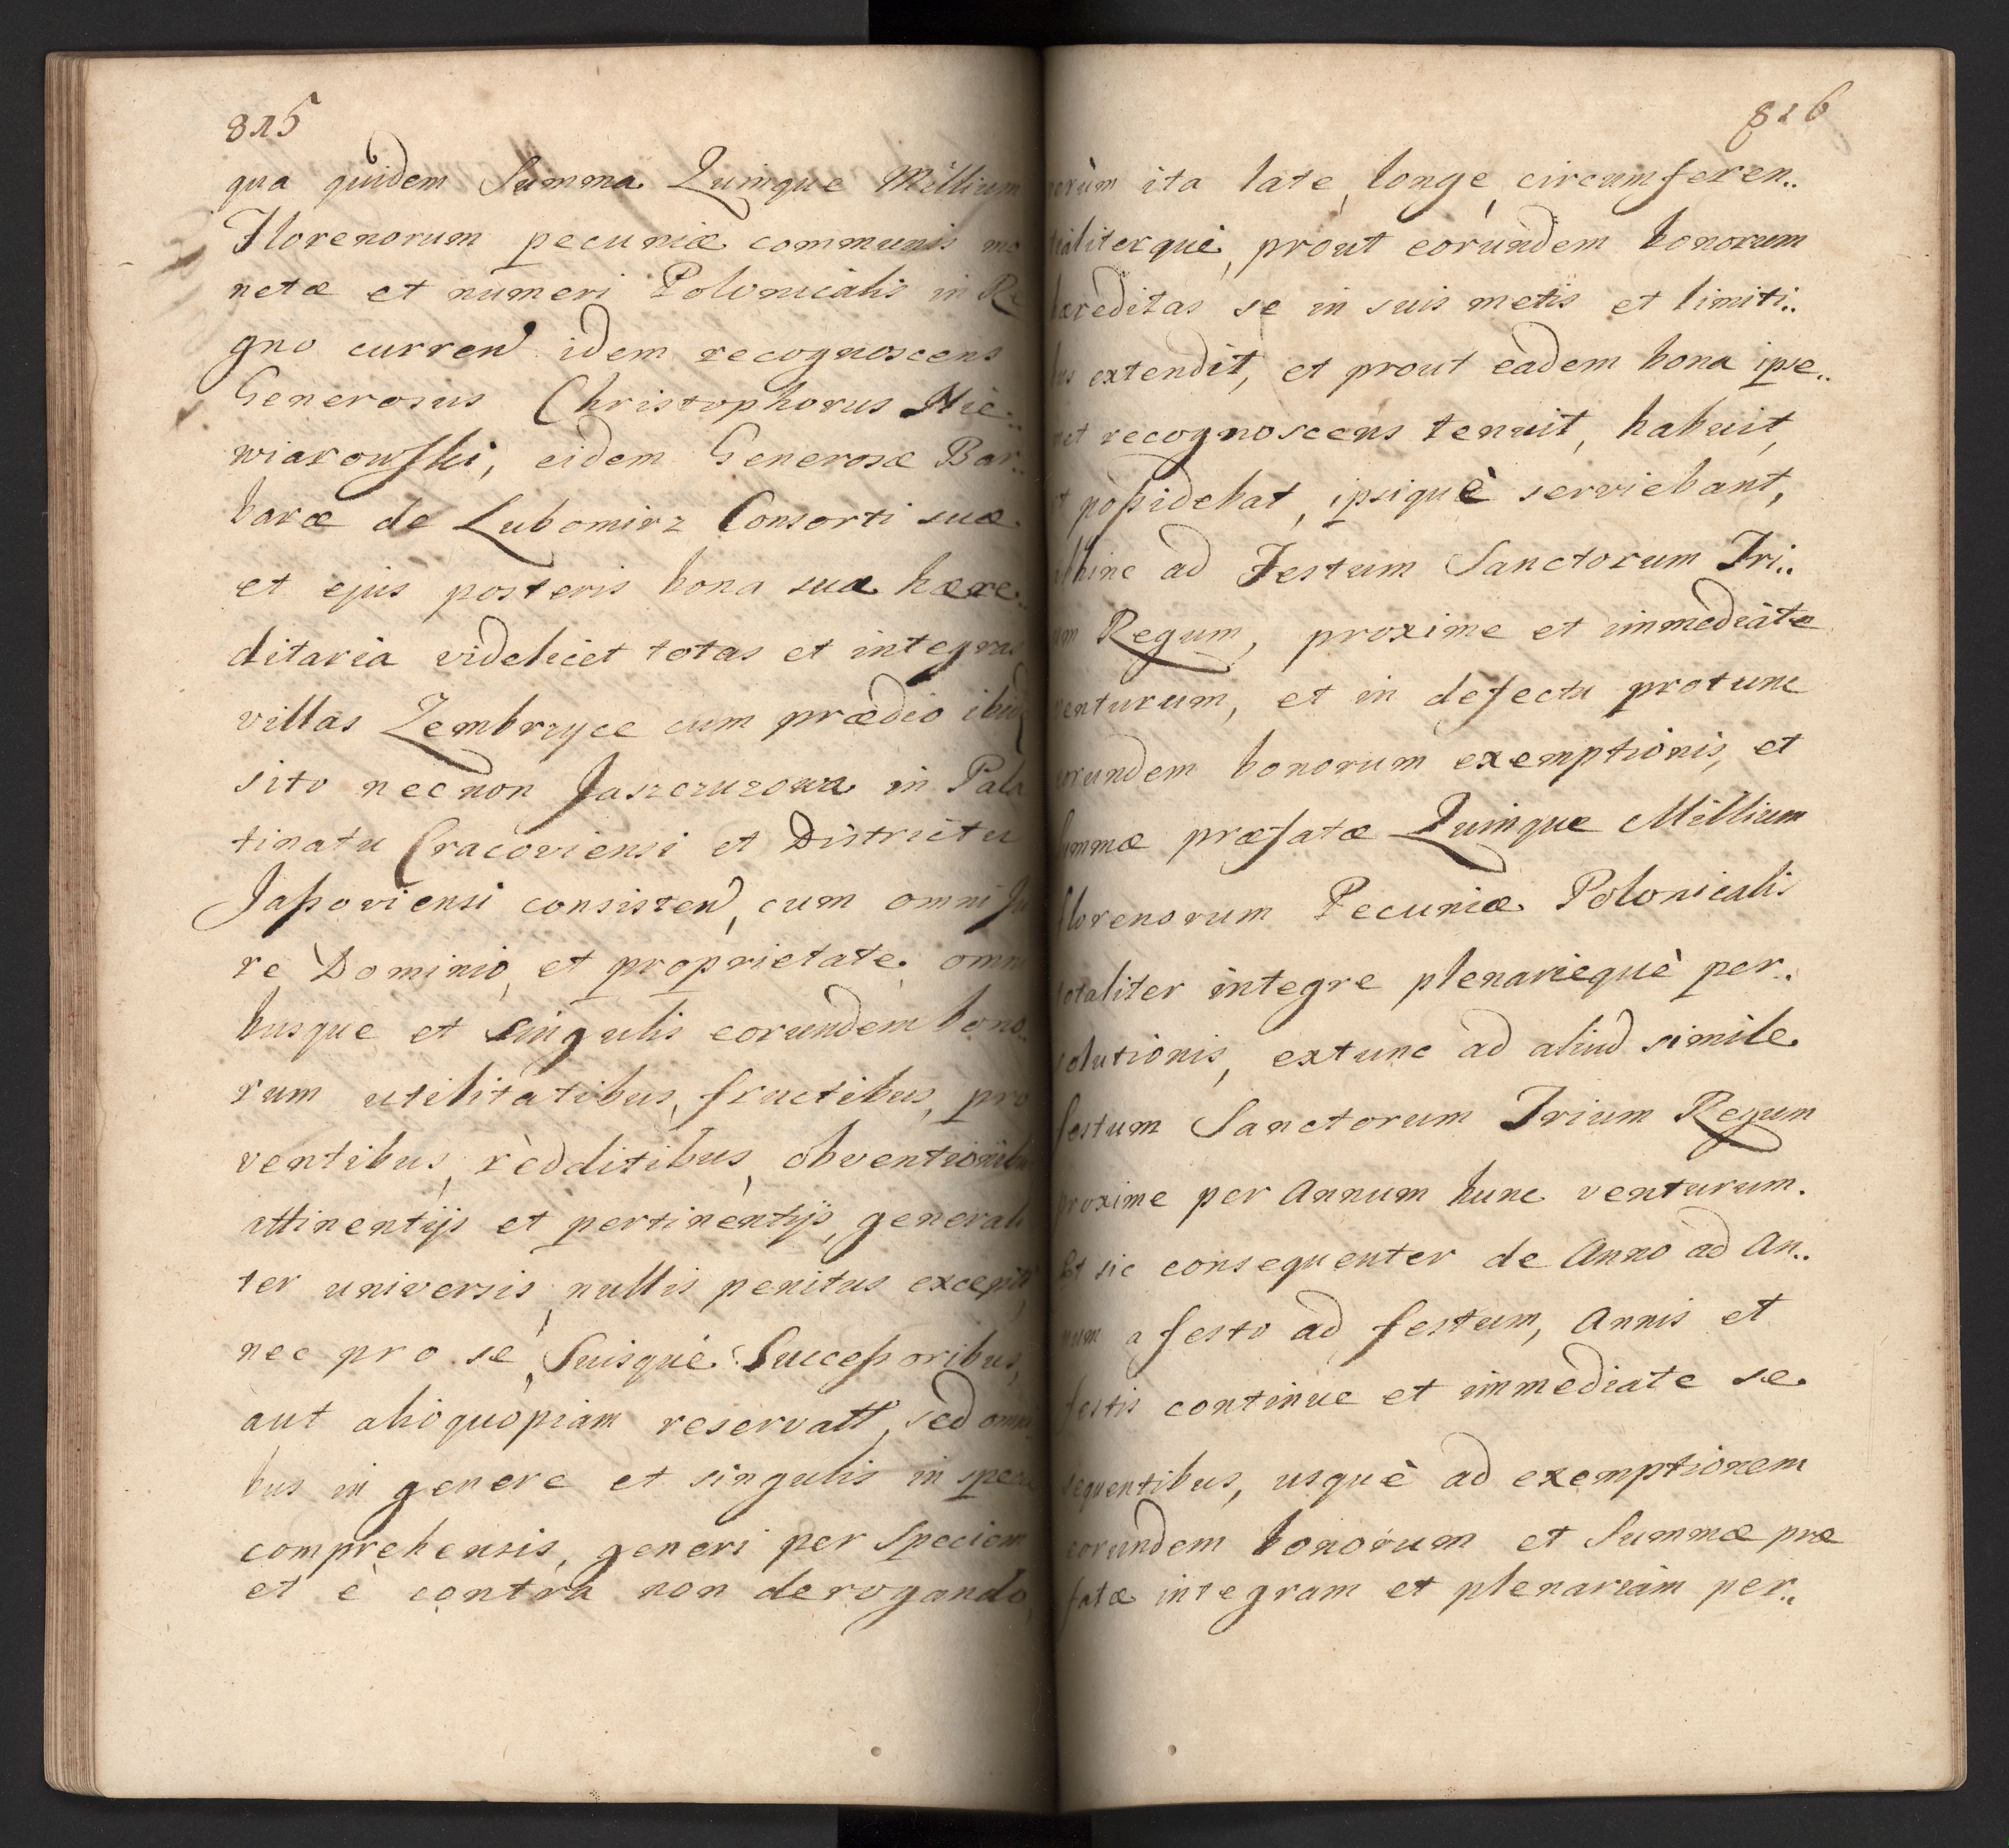 825
qua quidem Summa Quinque Millium
Florenorum pecuniæ communis mo
netæ et numeri Polonicalis in Re
gno curren idem recognoscens
Generosus Christophorus Nie..
wiarowski, eidem Generosæ Bar..
baræ de Lubomirz Consorti suæ
et ejus posteris bona sua hære..
ditaria videlicet totas et integras
villas Zembrzyce cum prædio ibid
sito necnon Jaszczurowa in Pala
tinatu Cracoviensi et Districtu
consisten, cum omni Ju
re Dominio, et proprietate, omni
busque et singulis eorundem bono..
rum utilitatibus, fructibus, pro
ventibus, rèdditibus, obventionibu
attinentijs et pertinentijs, generali
ter universis, nullis penitus except
nec pro se, Suisque Successoribus,
aut alio quopiam reservatt, sed omni
bus in genere et singulis in specie
comprehensis, generi per Speciem
et è contra non derogando,
826
ita late, longe, circumferen..
tialiterquè, prout eorundem bonorum
hæreditas se in suis metis et limiti..
bus extendit, et prout eadem bona ipse..
met recognoscens tenuit, habuit,
et possidebat, ipsiquè serviebant,
abhinc ad Festum Sanctorum Tri..
um Regum, proxime et immediate
venturum, et in defectu protunc
eorundem bonorum exemptionis, et
Summæ præfatæ Quinque Millium
florenorum Pecuniæ Polonicalis
totaliter integre plenariequè per..
solutionis, extunc ad aliud simile
festum Sanctorum Trium Regum
proxime per Annum hunc venturum.
Et sic consequenter de Anno ad An..
num a festo ad festum, Annis et
festis continue et immediate se
sequentibus, usquè ad exemptionem
eorundem bonorum et Summæ præ
fatæ integram et plenariam per..